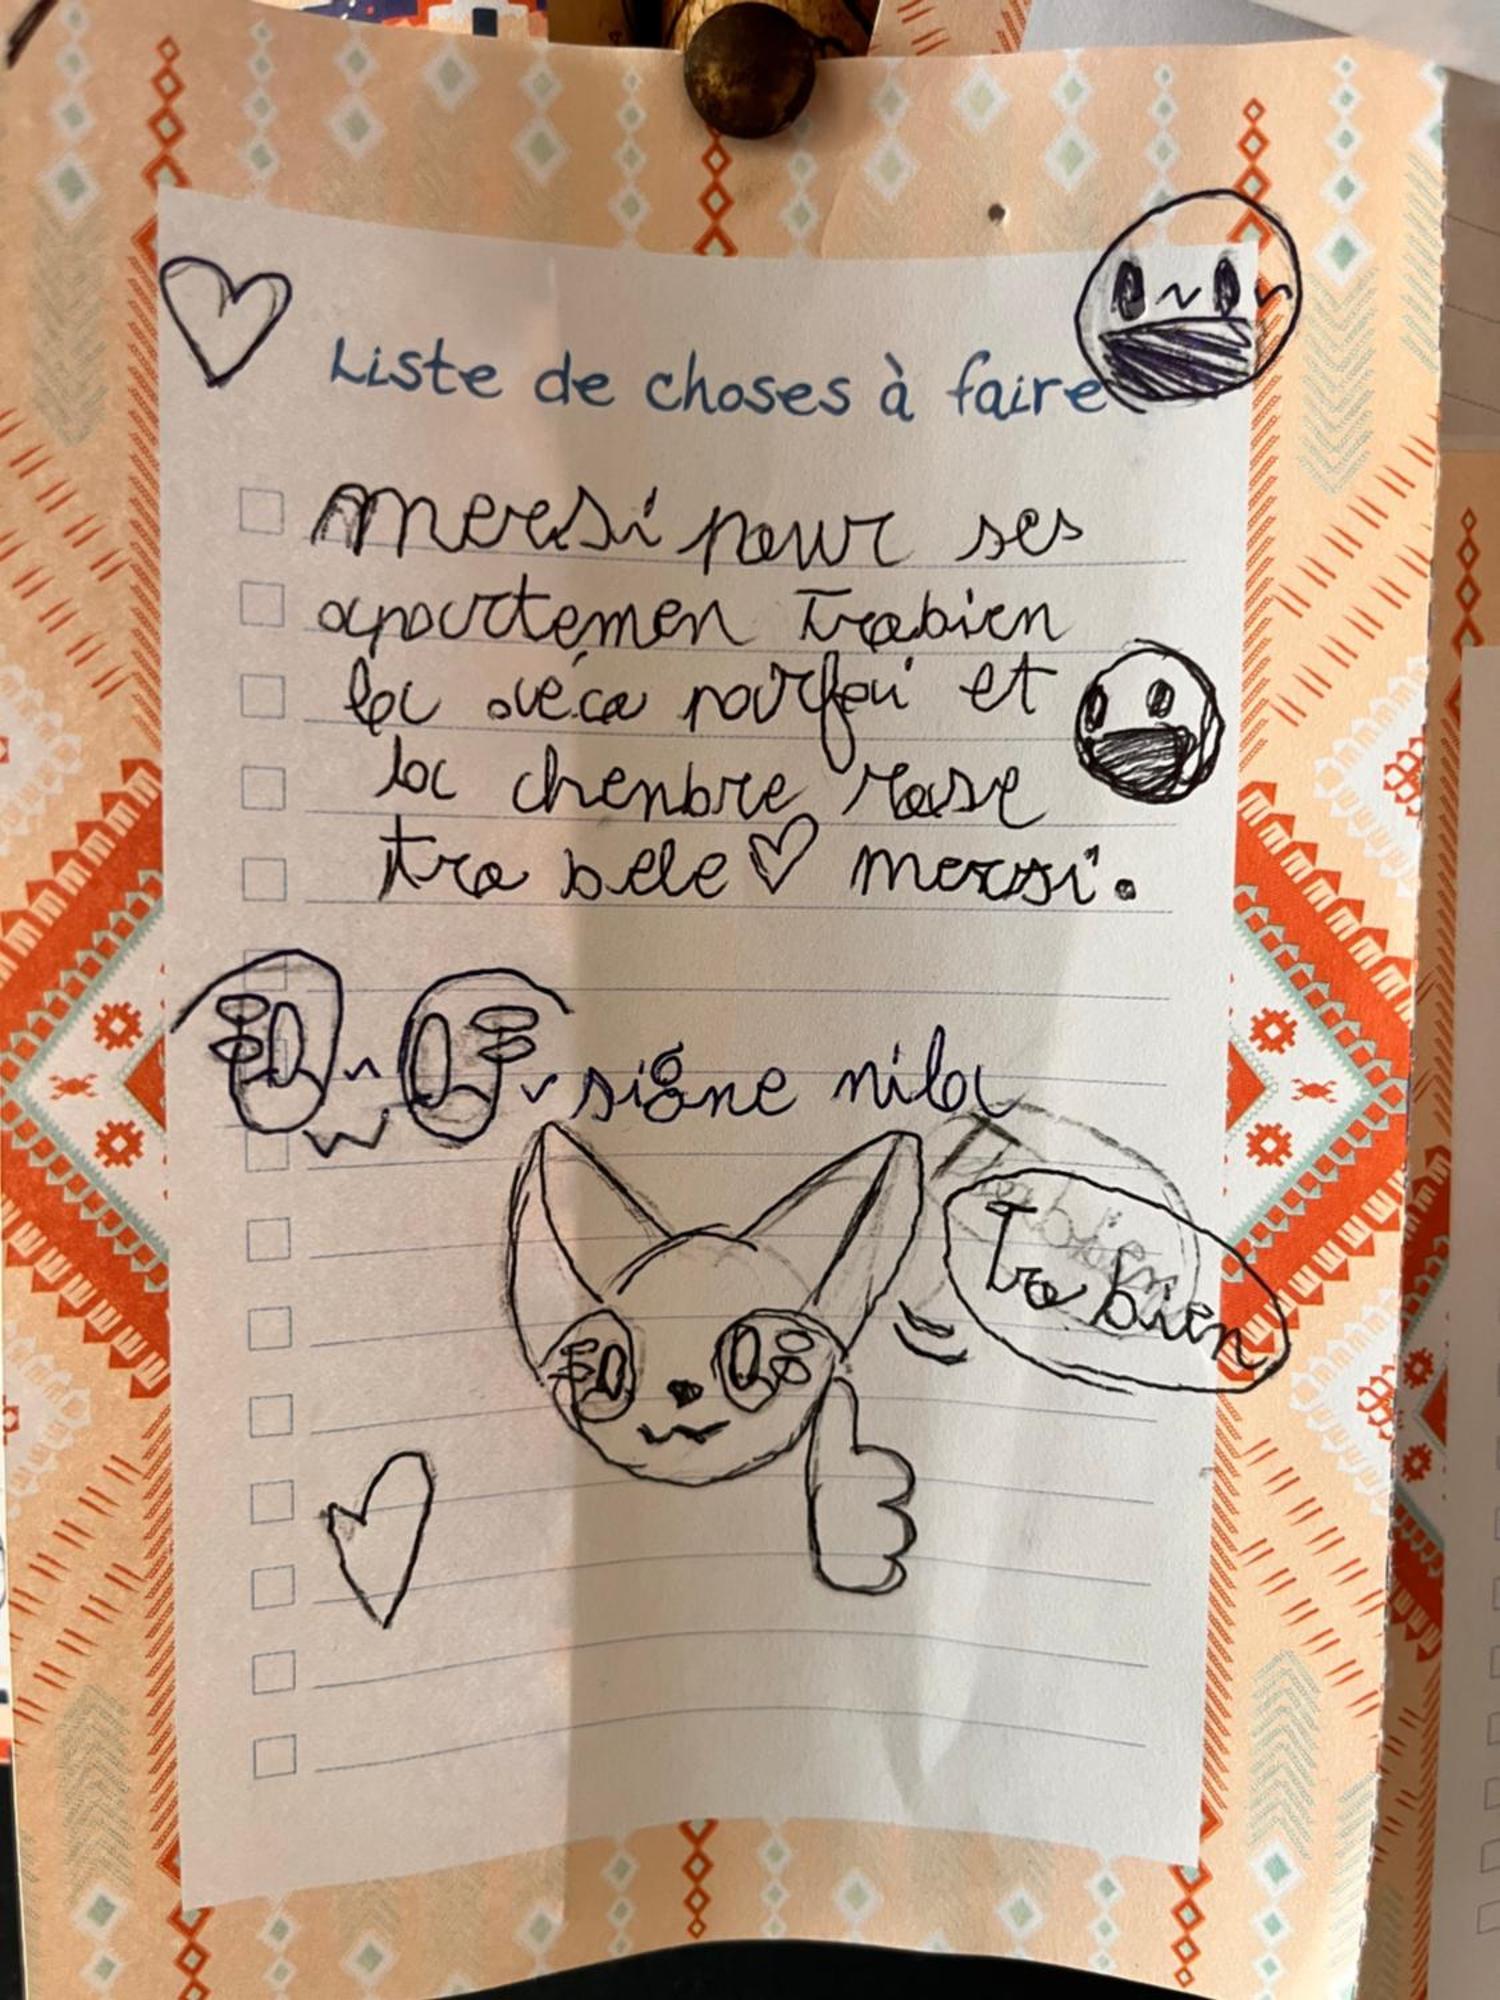 Liste de choses à faire
mersi pour ses
apartemen trabien
la véca parfai et
la chenbre rose
tra bele mersi.
signe nila
Tra bien